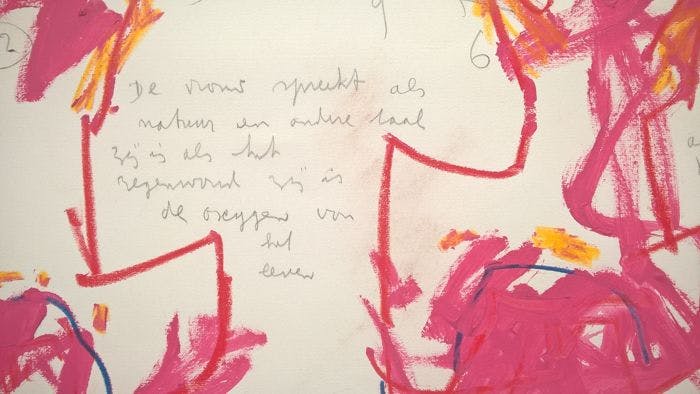 2
6
De vrouw spreekt als
natuur en andere taal
zij is als het
regenwoud zij is
de oxygen van
het
leven